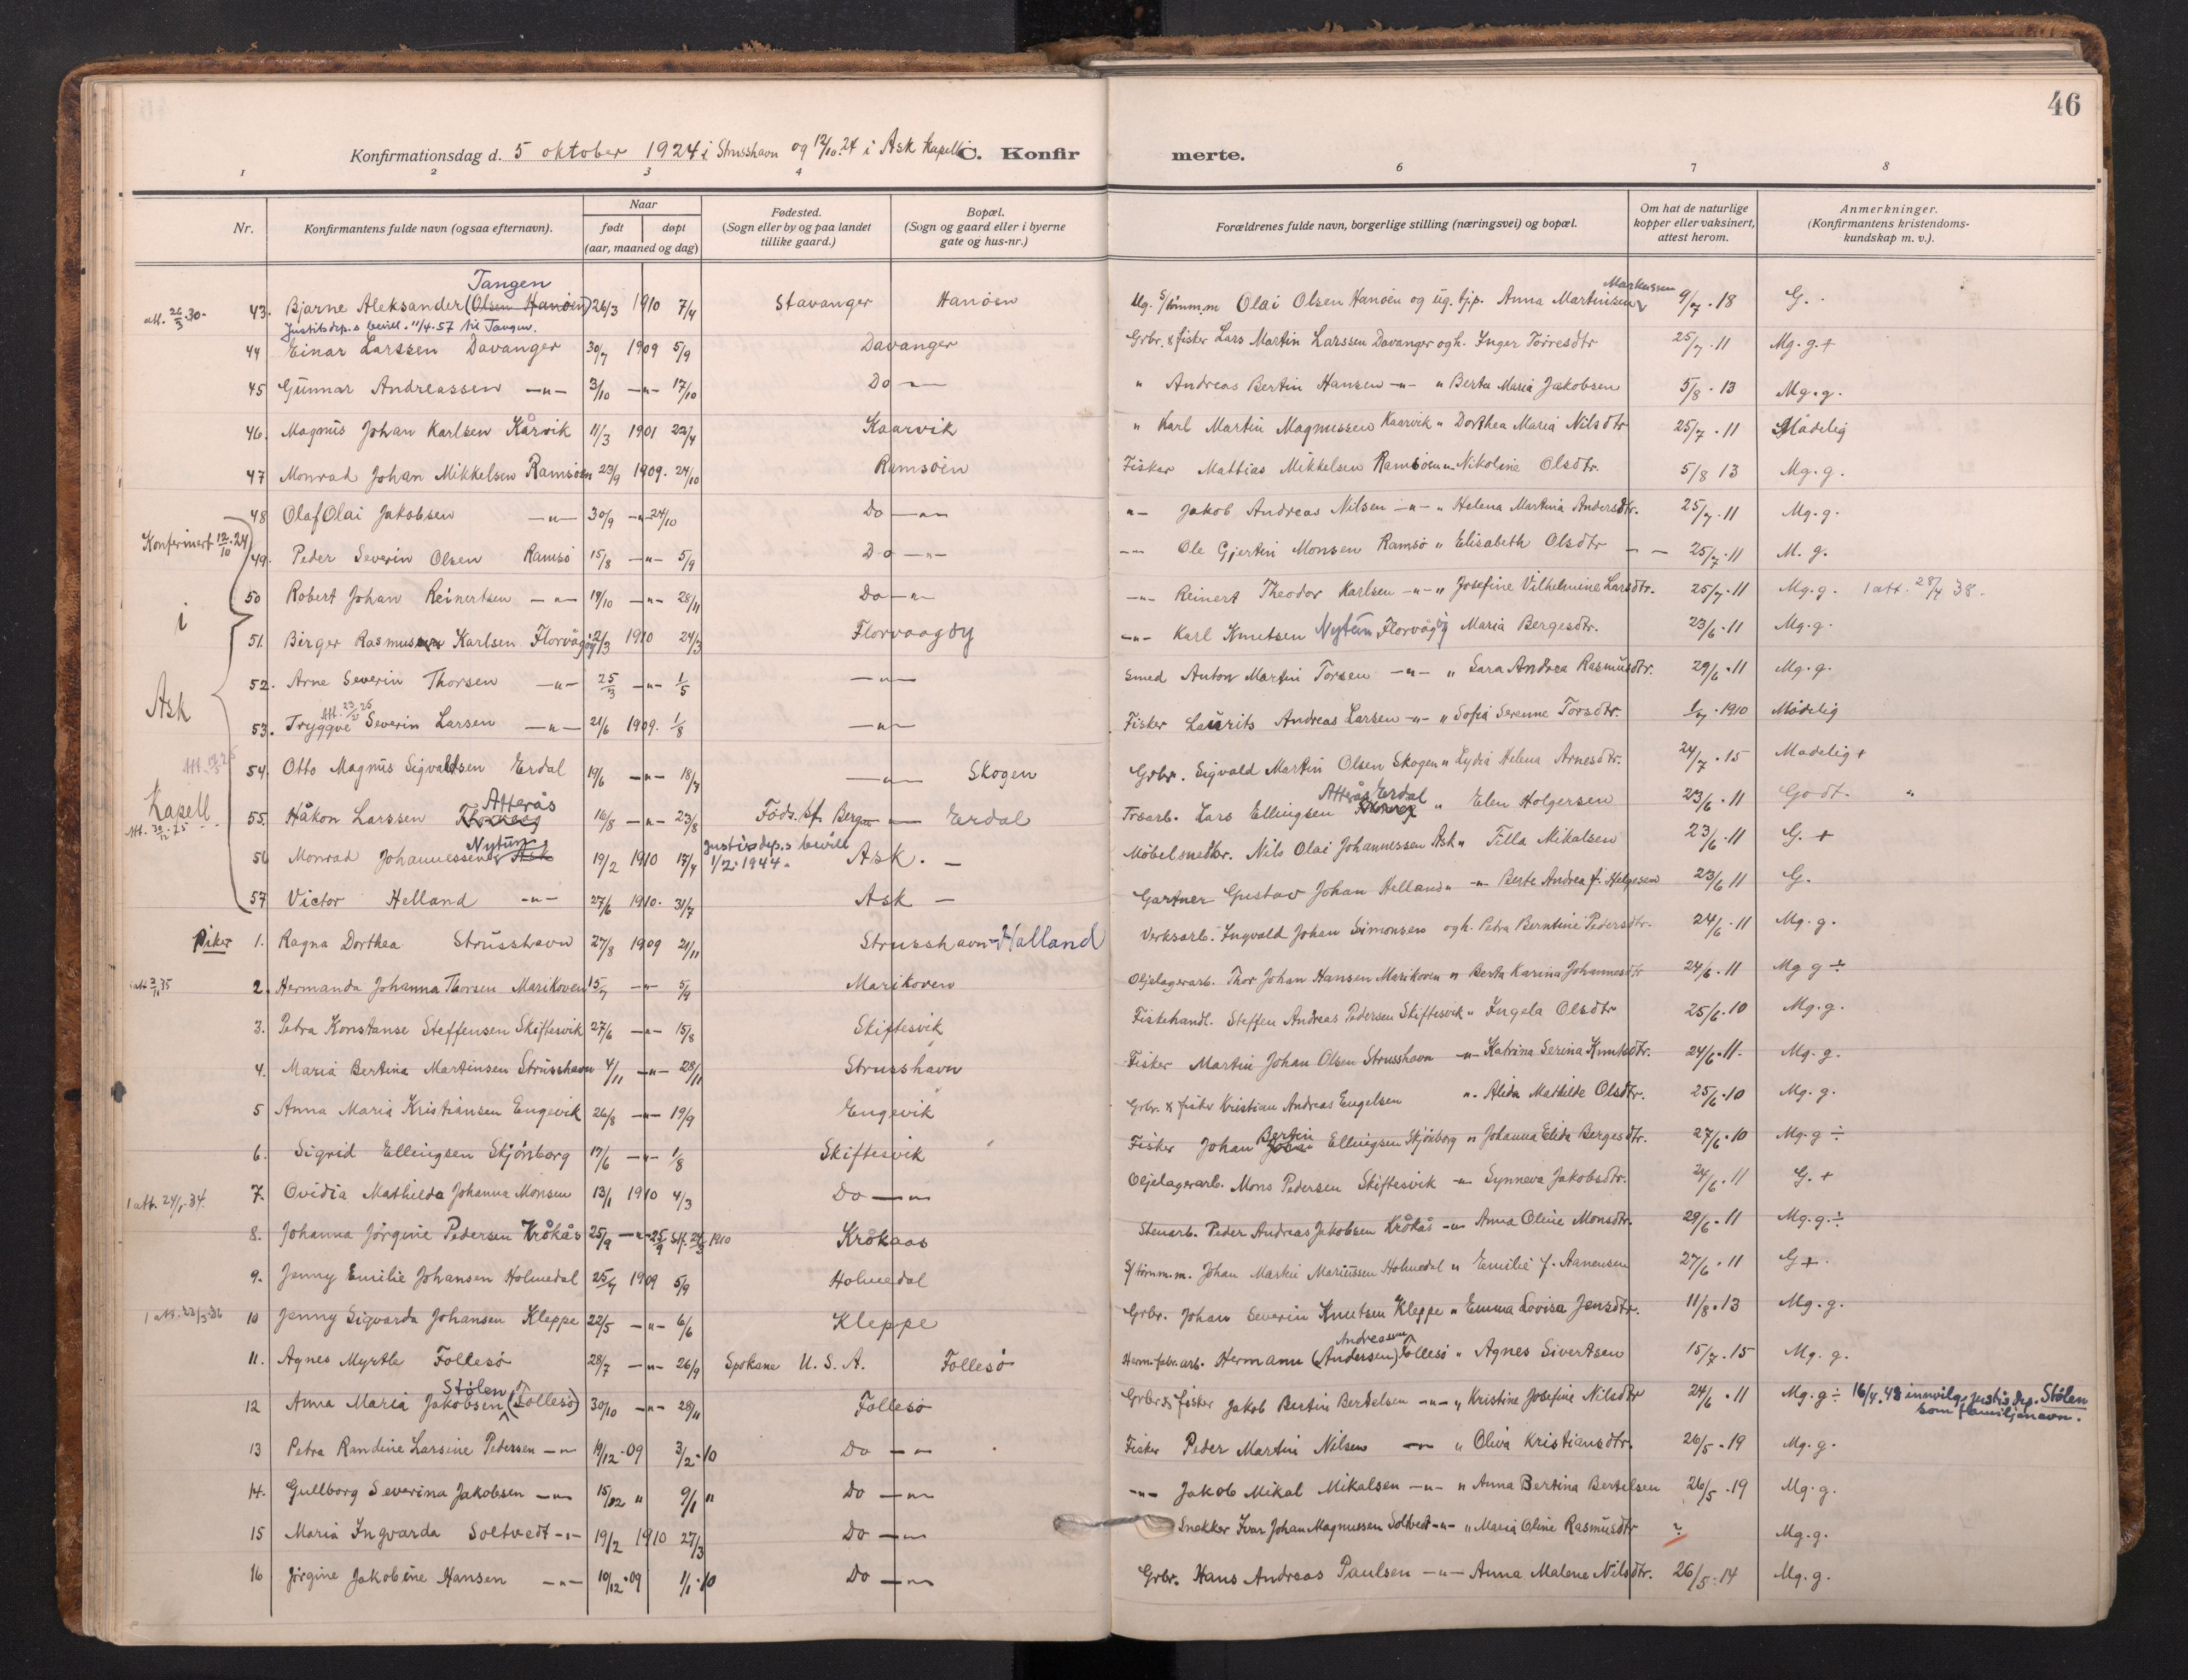 46
Konfirmationsdag d. 5 oktober 1924 i Strusshavn og 12/10.24 i Ask Kapell C. Konfirmerte.
1 2 3 4 6 7 8
Nr. Konfirmantens fulde navn (ogsaa efternavn). Naar født døpt (aar, maaned og dag) Fødested. (Sogn eller by og paa landet tillike gaard.) Bopæl. (Sogn og gaard eller i byerne gate og hus-nr.) Forældrenes fulde navn, borgerlige stilling (næringsvei) og bopæl. Om hat de naturlige kopper eller vaksinert, attest herom. Anmerkninger. (Konfirmantens kristendoms-kundskap m. v.).
Tangen Markussen
att. 26/3.30. 43. Bjarne Aleksander (Olsen Hanöen) 26/3 1910 7/4 Stavanger Hanöen Ug. S/tömm.m Olai Olsen Hanöen og ug. tjp. Anna Martinsen 9/7.18 G.
Justitsdep.s bevill. 11/4.57 til Tangen.
44 Einar Larssen Davanger 30/7 1909 5/9 Davanger Grbr. & fisker Lars Martin Larssen Davanger og h. Inger Torresdtr 25/7.11 Mg.g.+
45 Gunnar Andreassen -"- 3/10 -"- 17/10 Do -"- " Andreas Bertin Hansen -"- " Berta Maria Jakobsen 5/8.13 Mg.g.
46. Magnus Johan Karlsen Kårvik 11/3 1901 22/4 Kaarvik " Karl Martin Magnussen Kaarvik " Dorthea Maria Nilsdtr 25/7.11 Mådelig
47 Monrad Johan Mikkelsen Ramsöen 23/9 1909. 24/10 Ramsöen Fisker Mathias Mikkelsen Ramsöen " Nikoline Olsdtr. 5/8 13 Mg.g.
48 Olaf Olai Jakobsen -"- 30/9 -"- 24/10 Do -"- "- Jakob Andreas Nilsen -"- " Helena Martina Andersdtr. 25/7.11 Mg.g.
Konfirmert 12/10.24 i Ask Kapell
49. Peder Severin Olsen Ramsö 15/8 -"- 5/9 Do -"- -"- Ole Gjertin Monsen Ramsö " Elisabeth Olsdtr - - 25/7.11 M.g.
50 Robert Johan Reinertsen -"- 19/10 -"- 28/11 Do -"- -"- Reinert Theodor Karlsen -"- " Josefine Vilhelmine Larsdtr. 25/7.11 Mg.g. 1 att. 28/4 38.
51. Birger Rasmus Karlsen Florvågöy 2/3 1910 24/3 Florvaagöy -"- Karl Knutsen Nytun, Florvåg og Maria Bergesdtr. 23/6.11 Mg.g.
52. Arne Severin Thorsen -"- 25/3 -"- 1/5 -"- Smed Anton Martin Torsen -"- " Sara Andrea Rasmusdtr. 29/6.11 Mg.g.
Att. 23/2 26
53. Tryggve Severin Larsen -"- 21/6 1909. 1/8 -"- Fisker Laurits Andreas Larsen -"- " Sofia Serenne Torsdtr. 1/7.1910 Mådelig
54. Otto Magnus Sigvaldsen Erdal 19/6 -"- 18/7 -"- Skogen Grbr. Sigvald Martin Olsen Skogen " Lydia Helena Arnesdtr. 24/7.15 Madelig +
Atterås Atterås Erdal
Att. 30/12.25 55. Håkon Larssen 16/8 -"- 23/8 Föds. st. Bergen -"- Erdal Trsarb. Lars Ellingsen " Elen Holgersen 23/6.11 Godt. "
Nytun Justisdep.s bevill
56 Monrad Johannessen Ask 19/2 1910 17/4 1/2.1944. Ask. - Möbelsnedkr. Nils Olai Johannessen Ask " Tilla Mikalsen 23/6.11 G.+
57 Victor Helland -"- 27/6 1910. 31/7 Ask - Gartner Gustav Johan Helland " -"- Berte Andrea f. Helgesen 23/6 11 G.
Piker 1. Ragna Dorthea Strusshavn 27/8 1909 21/11 Strusshavn - Halland Verksarb. Ingvald Johan Simonsen og h. Petra Berntine Pedersdtr. 24/6.11 Mg.g.
2. Hermanda Johanna Thorsen Marikoven 15/7 -"- 5/9 Marikoven Oljelagerarb. Thor Johan Hansen Marikoven " Berta Karina Johannesdtr 24/6.11 Mg g ÷
3. Petra Konstanse Steffensen Skiftesvik 27/6 -"- 15/8 Skiftesvik Fiskehandl. Steffen Andreas Pedersen Skiftesvik " Ingela Olsdtr 25/6.10 Mg.g.
4. Maria Bertina Martinsen Strusshavn 4/11 -"- 28/11 Strusshavn Fisker Martin Johan Olsen Strusshavn -"- Katrina Serina Knutsdtr. 24/6.11. Mg.g.
5 Anna Maria Kristiansen Engevik 26/8 -"- 19/9 Engevik Grbr. & fisker Kristian Andreas Engelsen ". Alida Mathilde Olsdtr. 25/6.10 Mg.g.
6. Sigrid Ellingsen Skjönborg 17/6 -"- 1/8 Skiftesvik Fisker Johan Bertin Ellingsen Skjönborg " Johanna Elida Bergesdtr. 27/6.10 Mg.g ÷
1 att. 24/1.34. 7. Ovidia Mathilda Johanna Monsen 13/1 1910 4/3 Do -"- Oljelagerarb. Mons Pedersen Skiftesvik -"- Synneva Jakobsdtr. 24/6.11 G.+
8. Johanna Jörgine Pedersen Kråkås 25/9 -"- 25/9 St. 24/3 1910 Kråkaas Stenarb. Peder Andreas Jakobsen Kråkås -"- Anna Oline Monsdtr. 29/6.11 Mg.g.÷
9. Jenny Emilie Johansen Holmedal 25/7 1909 5/9 Holmedal S/tömm.m. Johan Martin Mariussen Holmedal " Emilie f. Aanensen 27/6.11 G+.
10 Jenny Sigvarda Johansen Kleppe 22/5 -"- 6/6 Kleppe Grbr. Johan Severin Knutsen Kleppe " Emma Lovisa Jensdtr. 11/8.13 Mg.g.
Andreassen
11. Agnes Myrtle Follesö 28/7 -"- 26/9 Spokane U.S.A. Follesö Herm.fabr.arb. Hermann (Andersen) Follesö " Agnes Sivertsen 15/7.15 Mg.g.
Stölen
12 Anna Maria Jakobsen (Follesö) 30/10 -"- 28/11 Follesö Grbr & fisker Jakob Bertin Bertelsen -"- " Kristine Josefine Nilsdtr 24/6.11 Mg.g÷ 16/4.48 innvilg. justisdep. Stölen som familjenavn.
13 Petra Randine Larsine Pedersen -"- 19/12.09 3/2.10 Do -"- Fisker Peder Martin Nilsen -"- " Oliva Kristiansdtr. 26/5.19 Mg.g.
14. Gullborg Severina Jakobsen -"- 15/12 " 9/1 " Do -"- -"- Jakob Mikal Mikalsen -"- " Anna Bertina Bertelsen 26/5.19 Mg.g.
15 Maria Ingvarda Soltvedt -"- 19/2 1910 27/3 Do -"- Snekker Ivar Johan Magnussen Soltvedt -"- " Maria Oline Rasmusdtr ? Mg.g.
16 Jörgine Jakobine Hansen -"- 10/12.09 1/1.10 Do -"- Grbr. Hans Andreas Paulsen -"- Anna Malene Nilsdtr. 26/5.14 Mg.g.